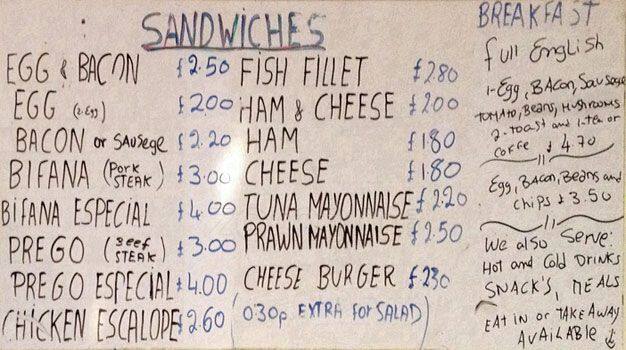 SANDWICHES
EGG & BACON £2.50
EGG (2.Egg) £2.00
BACON or SAUSEGE £2.20
BIFANA (Pork STEAK) £3.00
BIFANA ESPECIAL £4.00
PREGO (Beef STEAK) £3.00
PREGO ESPECIAL £4.00
CHICKEN ESCALOPE £2.60
FISH FILLET £2.80
HAM & CHEESE £2.00
HAM £1.80
CHEESE £1.80
TUNA MAYONNAISE £2.20
PRAWN MAYONNAISE £2.50
CHEESE BURGER £2.30
(0.30p EXTRA FOR SALAD)
BREAKFAST
full English
1-Egg, BACon, SauSage
TOMATO, Beans, MUSHROOMS
2-toast and 1-tea or
Coffe £4.70
Egg, Bacon, Beans and
chips £3.50
We also Serve:
Hot and Cold DRINKS
SNACK'S, MEALS
EAT IN or TAKE AWAY
AVAILABLE